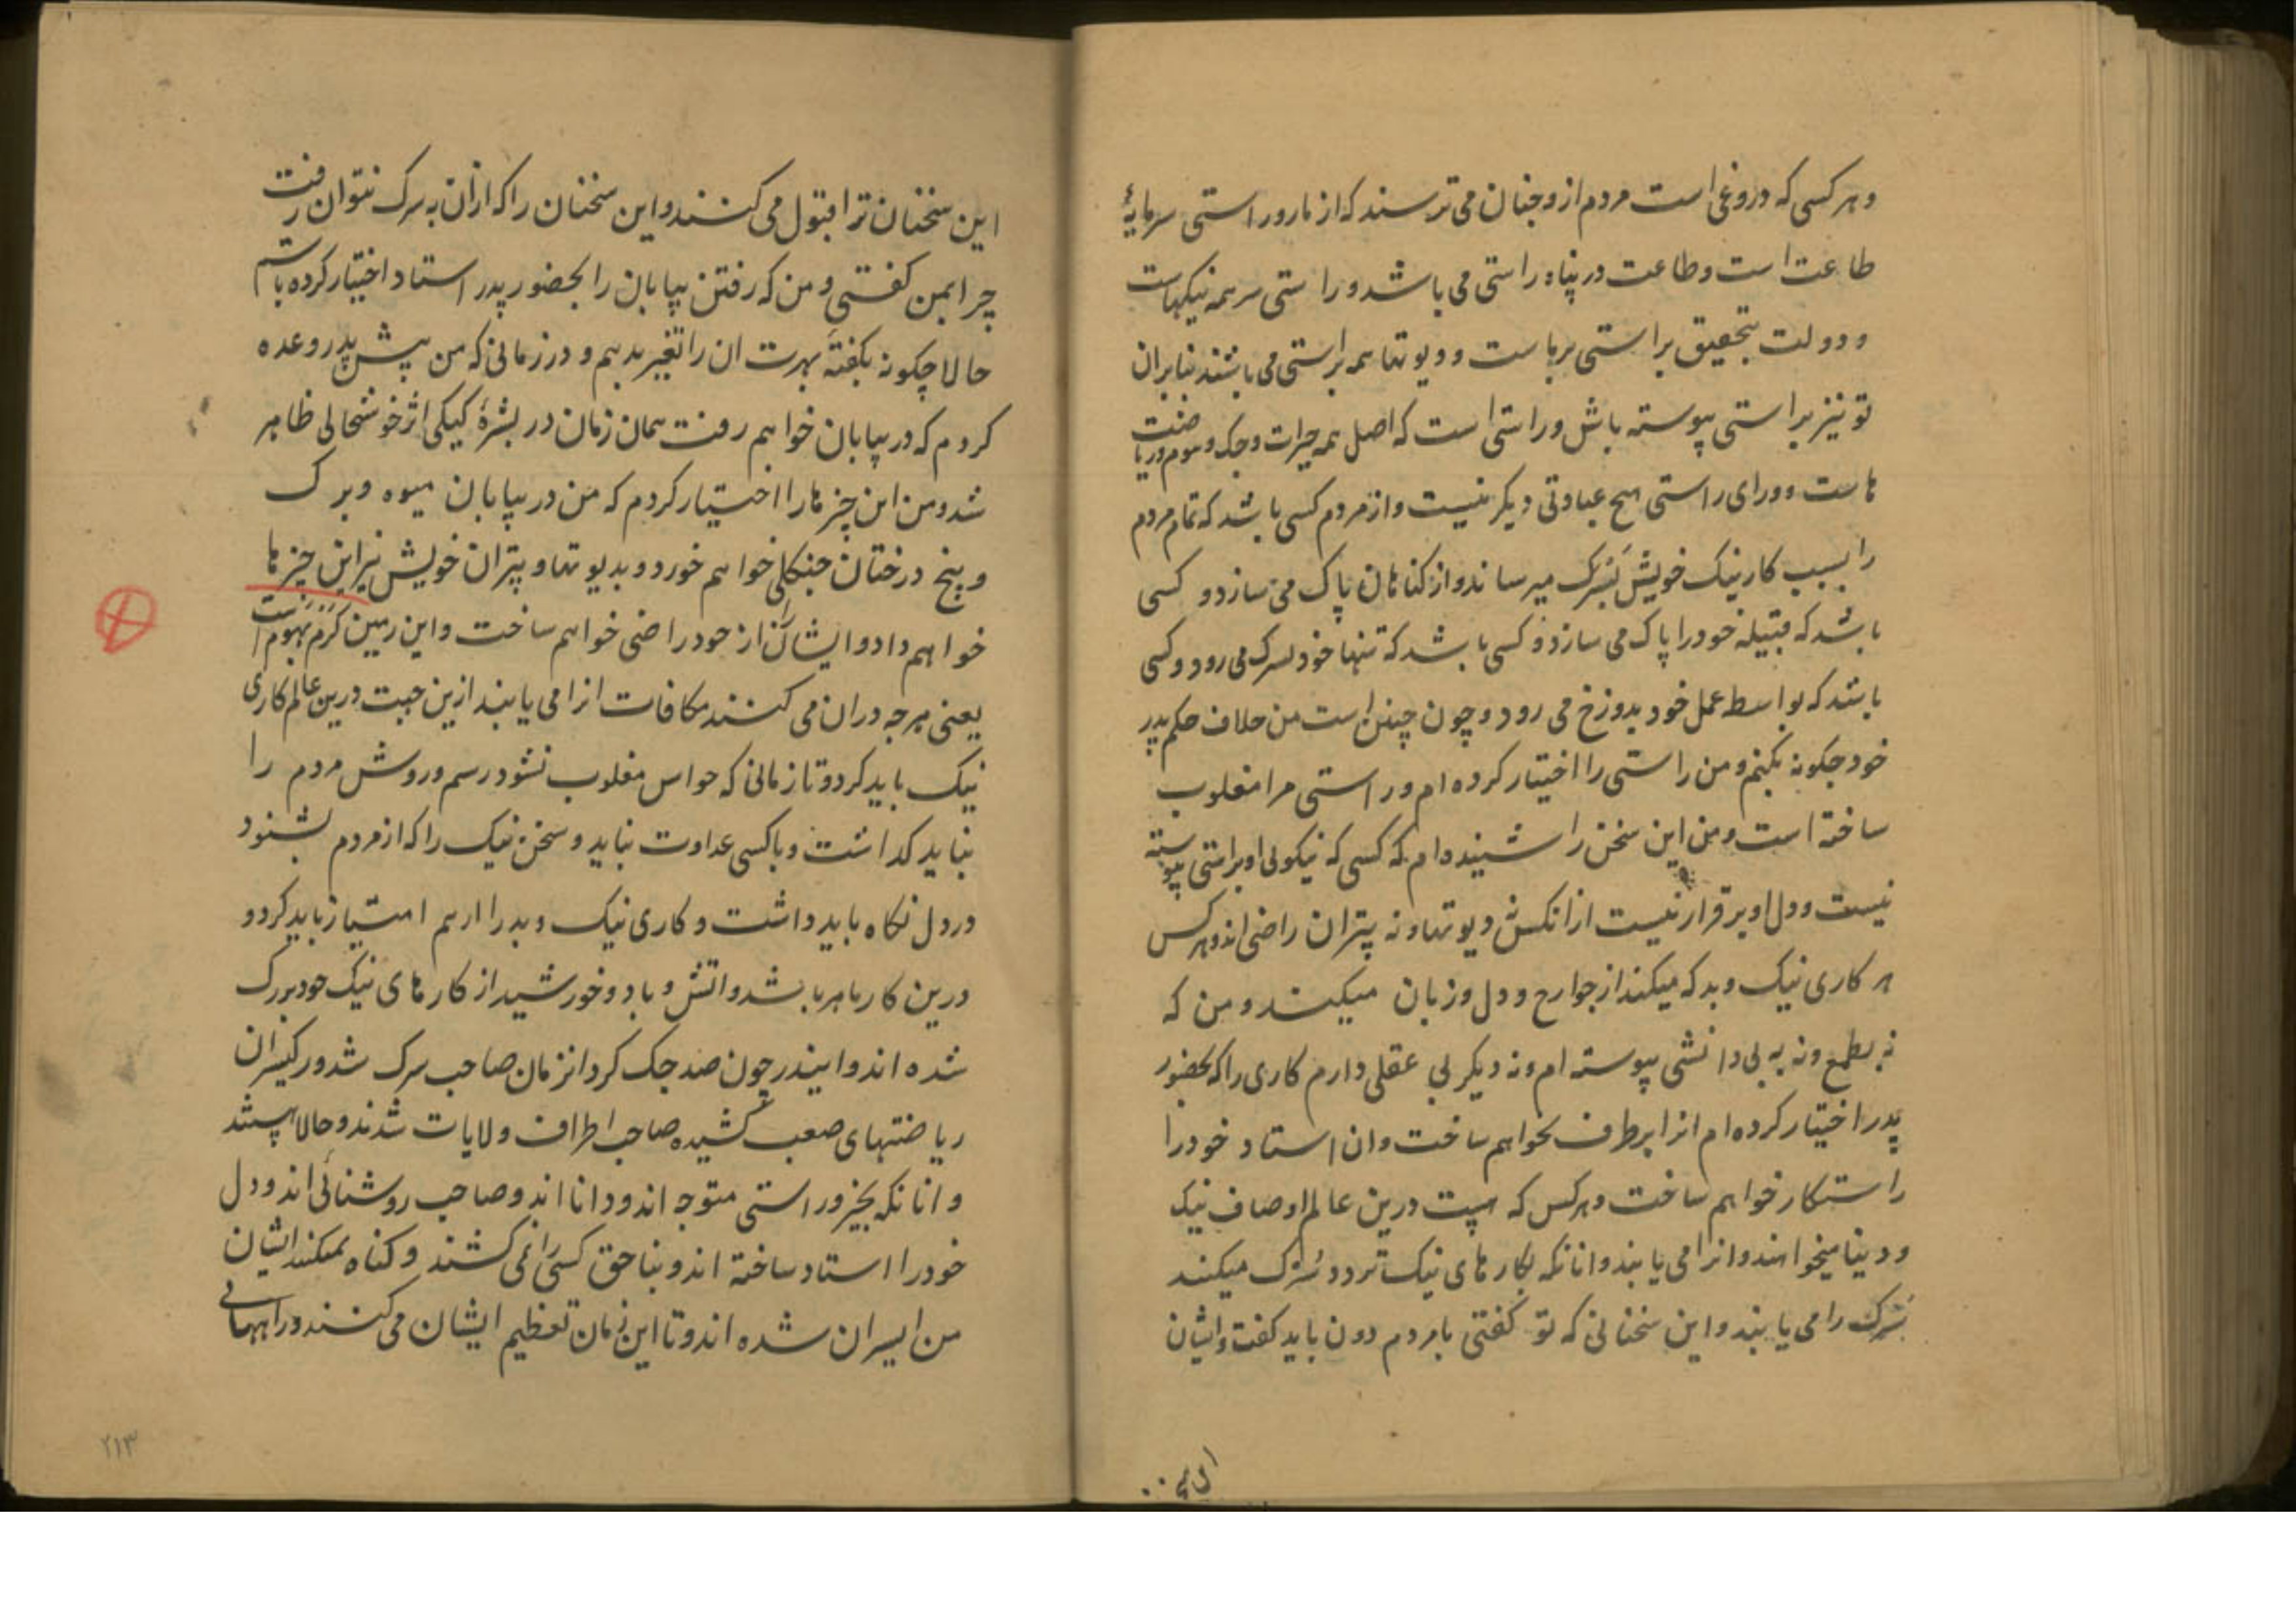 و هر کسی که دروغی است مردم ازو چنان می ترسند که از مار و راستی سرمایهٔ
طاعت است و طاعت در پناه راستی می باشد و راستی سر همه نیکیهاست
و دولت بتحقیق براستی برپاست و دیوتها همه براستی می باشند بنابران
تو نیز براستی پیوسته باش و راستی است که اصل همه خیرات و جک و هوم و ریاضت
هاست و ورای راستی هیچ عبادتی دیگر نیست و از مردم کسی باشد که تمام مردم
را بسبب کار نیک خویش بسرک میرساند و از کناهان پاک می سازد و کسی
باشد که قبیله خود را پاک می سازد و کسی باشد که تنها خود بسرک می رود و کسی
باشد که بواسط عمل خود بدوزخ می رود و چون چنین است من خلاف حکم پدر
خود چکونه بکنم و من راستی را اختیار کرده ام و راستی مرا مغلوب
ساخته است و من این سخن را شنیده ام که کسی که نیکوئی او براستی پیوسته
نیست و دل او برقرار نیست از انکس نه دیوتها و نه پتران راضی اند و هرکس
هر کاری نیک و بد که میکند از جوارح و دل و زبان میکند و من که
نه بطمع و نه به بی دانشی پیوسته ام و نه دیکر بی عقلی دارم کاری را که بحضور
پدر اختیار کرده ام انرا برطرف نخواهم ساخت و ان استاد خود را
راستکار خواهم ساخت و هرکس که هست درین عالم اوصاف نیک
و دینا میخواهند و انرا می یابند و انانکه بکارهای نیک تردد سرک میکنند
سرک را می یابند و این سخنانی که تو کفتی با مردم دون باید کفت و ایشان
این سخنان ترا قبول می کنند و این سخنان را که ازان به سرک نتوان رفت
چرا بمن کفتی و من که رفتن بیابان را بحضور پدر استاد اختیار کرده باشم
حالا چکونه بکفته بهرت ان را تغیر بدهم و در زمانی که من پیش پدر وعده
کردم که در بیابان خواهم رفت همان زمان در بشرهٔ کیکی اثر خوشحالی ظاهر
شد و من این چیزها را اختیار کردم که من در بیابان میوه و برک
و بیخ درختان جنکلی خواهم خورد و بدیوتها و پتران خویش نیز این چیزها
خواهم داد و ایشان را از خود راضی خواهم ساخت و این زمین کرم بهوم است
یعنی هرچه دران می کنند مکافات انرا می یابند ازین جهت درین عالم کاری
نیک باید کرد و تا زمانی که حواس مغلوب نشود رسم و روش مردم را
نباید کذاشت و با کسی عداوت نباید و سخن نیک را که از مردم بشنود
در دل نکاه باید داشت و کاری نیک و بد را از هم امتیاز باید کرد و
درین کار ماهر باشد و اتش و باد و خورشید از کارهای نیک خود بزرک
شده اند و ایندر چون صد جک کرد انزمان صاحب سرک شد و رکیسران
ریاضتهای صعب کشیده صاحب اطراف ولایات شدند و حالا هستند
و انانکه بخیر و راستی متوجه اند و دانا اند و صاحب روشنائی اند و دل
خود را استاد ساخته اند و بناحق کسی را نمی کشند و کناه نمیکنند ایشان
من ایسران شده اند و تا این زمان تعظیم ایشان می کنند و راههائی
۲۱۳